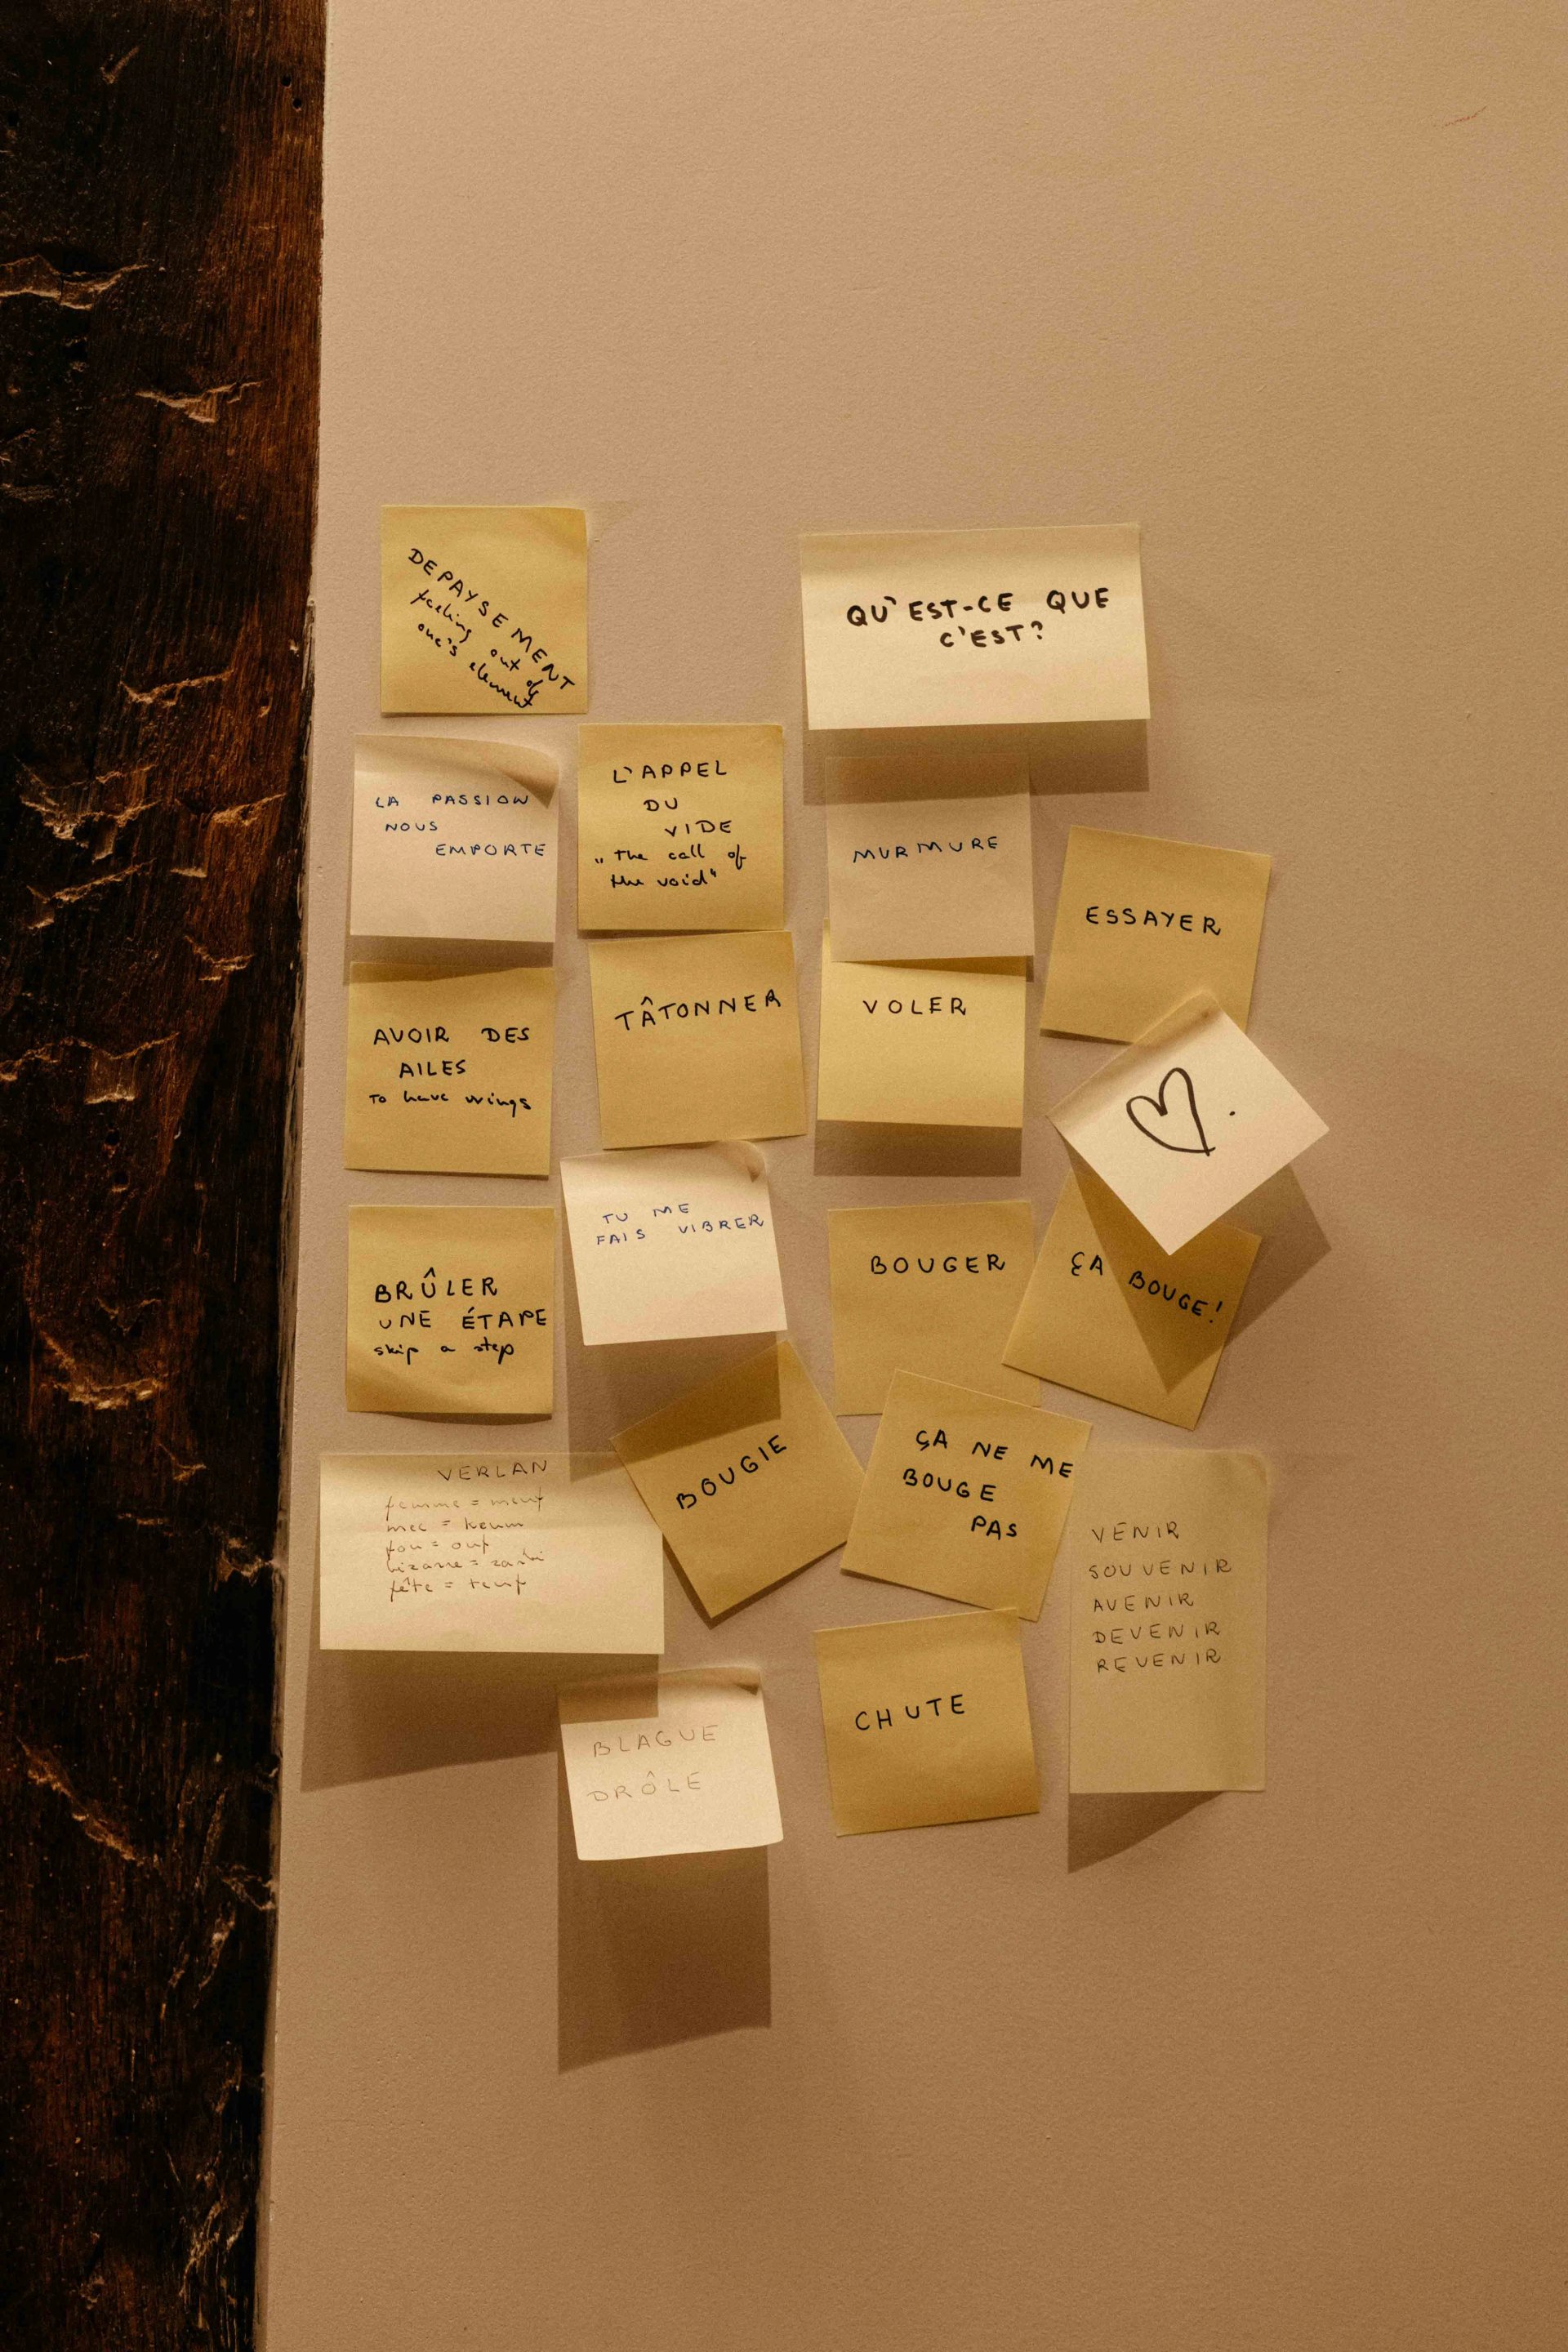 DEPAYSEMENT
feeling out of
one's element
QU'EST-CE QUE
C'EST?
LA PASSION
NOUS
EMPORTE
L'APPEL
DU
VIDE
„The call of
the void"
MURMURE
ESSAYER
AVOIR DES
AILES
To have wings
TÂTONNER
VOLER
BRÛLER
UNE ÉTAPE
skip a step
TU ME
FAIS VIBRER
BOUGER
ÇA BOUGE!
VERLAN
femme = meuf
mec = keum
fou = ouf
bizarre = zarbi
fête = teuf
BOUGIE
ÇA NE ME
BOUGE
PAS
VENIR
SOUVENIR
AVENIR
DEVENIR
REVENIR
BLAGUE
DRÔLE
CHUTE